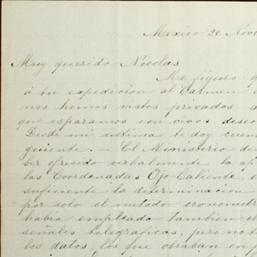 Mexico 20 Nov
Muy querido Nicolas
Me figuro q
á tu expedicion al Carmen
nos hemos visto privados d
que esparamos con vivos deseo
Desde mi última te doy cuen
guiente. — El Ministerio de
ser ofrecido verbalmente la
las Coordenadas Ojo-Caliente,
suficiente la determinacion
por solo el metodo cronomet
habia empleado tambien el
señales telegraficas, pero no
los datos, los que obraban en p